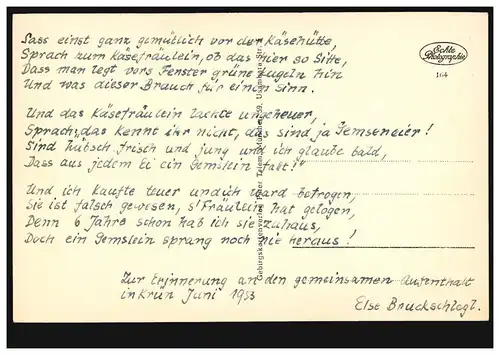 Sass einst ganz gemütlich vor der Käsehütte,
Sprach zum Käsefräulein, ob das hier so Sitte,
Dass man legt vors Fenster grüne Kugeln hin
Und was dieser Brauch für einen Sinn.
Und das Käsefräulein lachte ungeheuer,
Sprach, das kennt ihr nicht, das sind ja Gemseneier!
Sind hübsch frisch und jung und ich glaube bald,
Dass aus jedem Ei ein Gemslein fällt!"
Und ich kaufte teuer und ich ward betrogen,
Sie ist falsch gewesen, s'Fräulein hat gelogen,
Denn 6 Jahre schon hab ich sie zuhaus,
Doch ein Gemslein sprang noch nie heraus!
Zur Erinnerung an den gemeinsamen Aufenthalt
in Krün Juni 1953
Else Bruckschlegl.
Echte
Photographie
164
Gebirgskartenverlag Peter